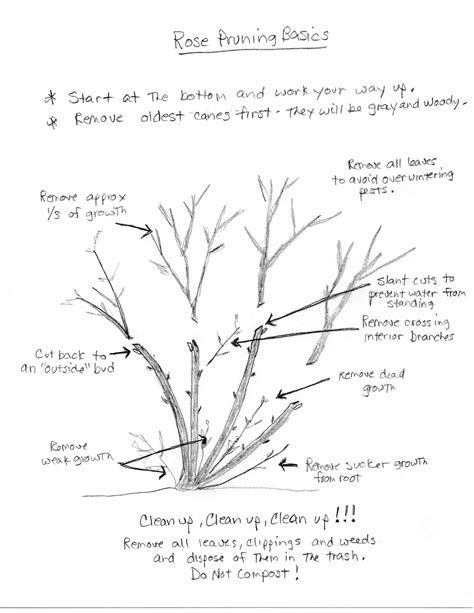 Rose Pruning Basics
* Start at the bottom and work your way up.
* Remove oldest canes first - they will be gray and woody.
Remove all leaves
to avoid overwintering
pests.
Remove approx
1/3 of growth
Slant cuts to
prevent water from
standing
Remove crossing
interior branches
Cut back to
an "outside" bud
Remove dead
growth
Remove
weak growth
Remove sucker growth
from root
Clean up, Clean up, Clean up!!!
Remove all leaves, clippings and weeds
and dispose of them in the trash.
Do Not Compost!